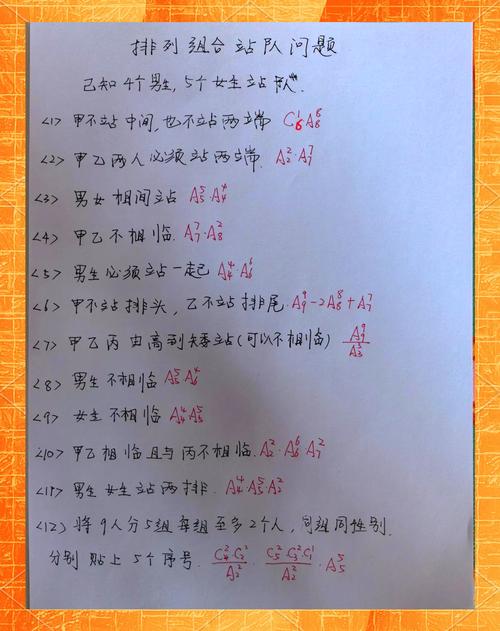 排列组合站队问题
已知4个男生,5个女生站队.
<1> 甲不站中间,也不站两端 C₆¹A₈⁸
<2> 甲乙两人必须站两端. A₂²·A₇⁷
<3> 男女相间站 A₅⁵A₄⁴
<4> 甲乙不相临. A₇⁷·A₈²
<5> 男生必须站一起 A₄⁴A₆⁶
<6> 甲不站排头,乙不站排尾 A₉⁹-2A₈⁸+A₇⁷
<7> 甲乙丙由高到矮站(可以不相临) A₉⁹/A₃³
<8> 男生不相临 A₅⁵A₆⁴
<9> 女生不相临 A₄⁴A₅⁵
<10> 甲乙相临且与丙不相临. A₂²·A₆⁶·A₇²
<11> 男生女生站两排. A₄⁴·A₅⁵·A₂²
<12> 将9人分5组每组至多2个人,同组同性别.
分别贴上5个序号. C₄²C₂²/A₂² · C₅²C₃²C₁¹/A₂² · A₅⁵